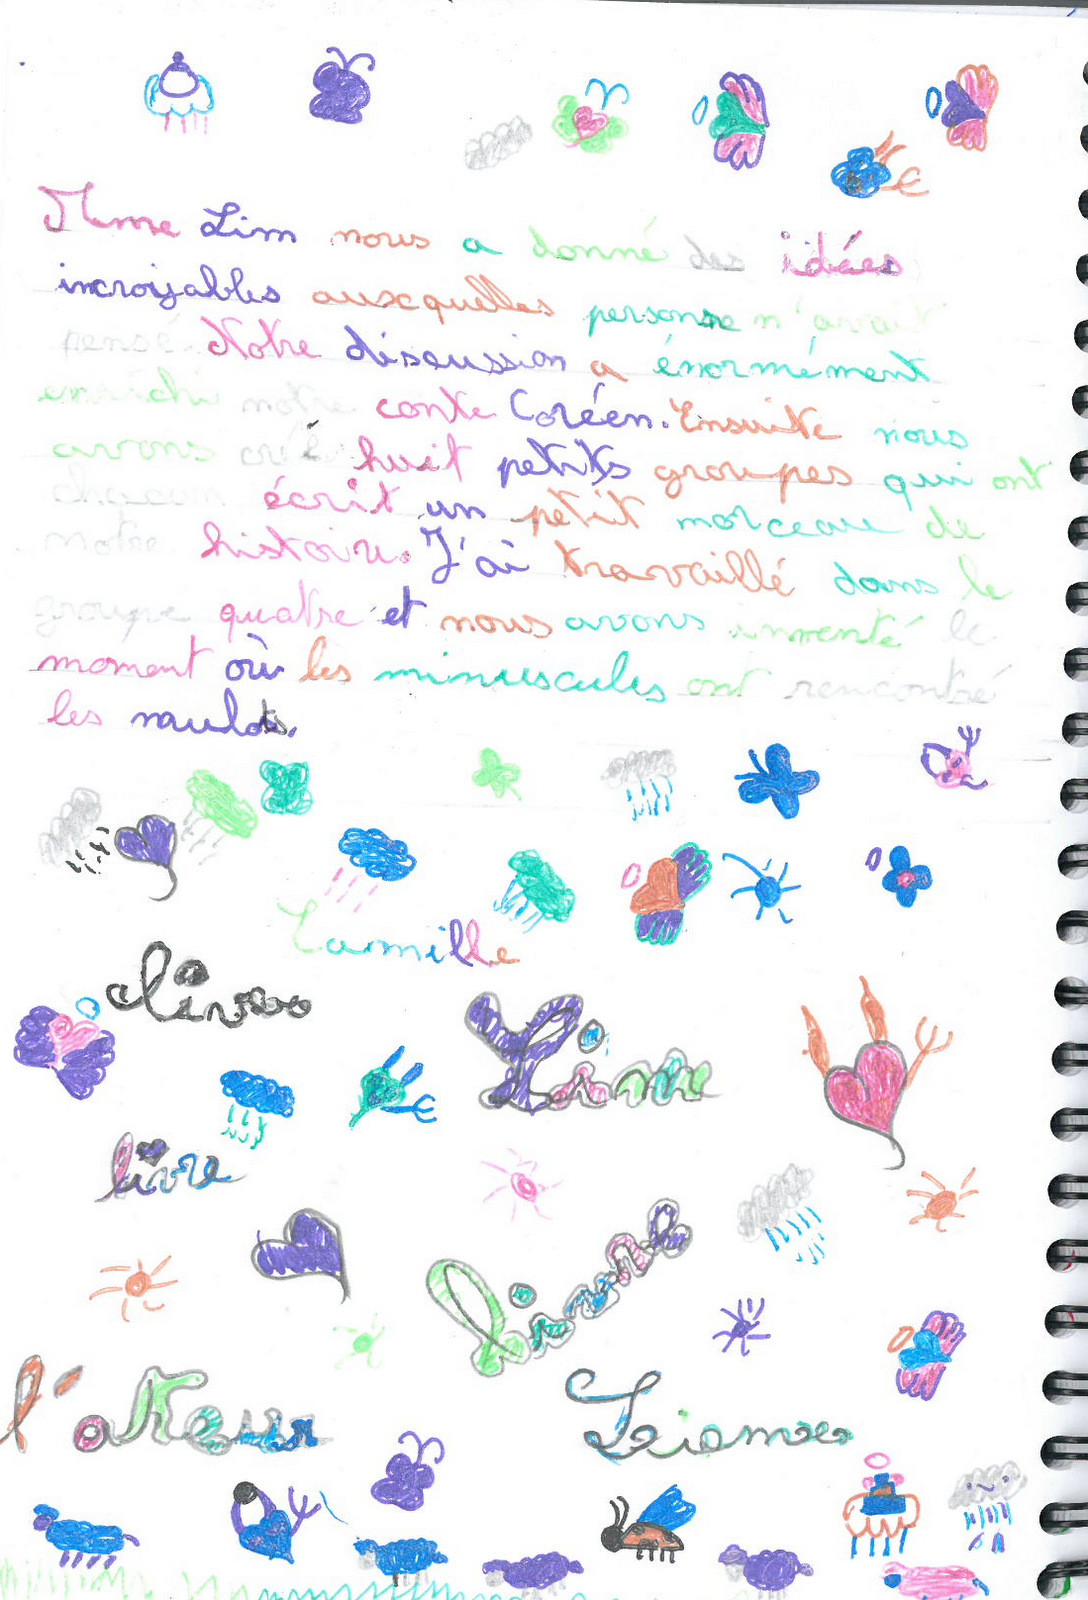 Mme Lim nous a donné des idées
incroyables auxquelles personne n'avait
pensé. Notre discussion a énormément
enrichi notre conte Coréen. Ensuite nous
avons créé huit petits groupes qui ont
chacun écrit un petit morceau de
notre histoire. J'ai travaillé dans le
groupe quatre et nous avons inventé le
moment où les minuscules ont rencontré
les mulots.
Camille
livre
Lim
livre
livre
l'oteur